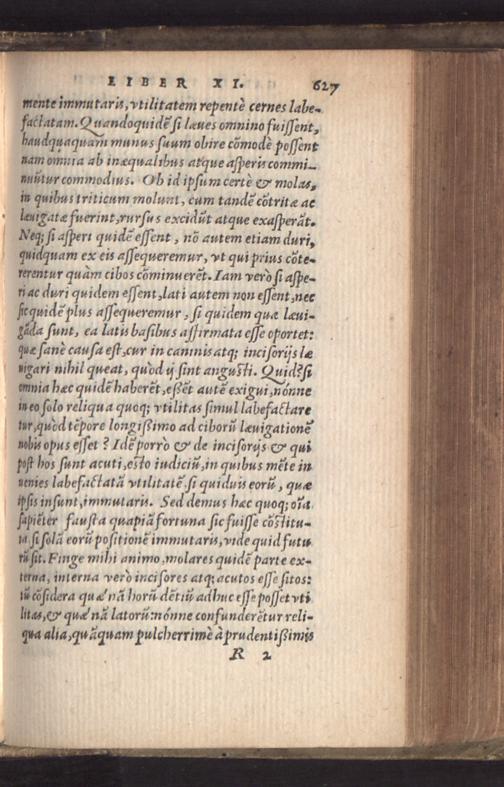 LIBER XI. 627
mente immutaris, vtilitatem repentè cernes labe-
factatam. Quandoquidē si læues omnino fuissent,
haudquaquam munus suum obire cōmodè possent
nam omnia ab inæqualibus atque asperis commi-
nuūtur commodius. Ob id ipsum certè & molas,
in quibus triticum molunt, cum tandē cōtritæ ac
læuigatæ fuerint, rursus excidūt atque exasperāt.
Neq; si asperi quidē essent, nō autem etiam duri,
quidquam ex eis assequeremur, vt qui prius cōte-
rerentur quàm cibos cōminuerēt. Iam verò si aspe-
ri ac duri quidem essent, lati autem non essent, nec
sic quidē plus assequeremur, si quidem quæ læui-
gāda sunt, ea latis basibus affirmata esse oportet:
quæ sanè causa est, cur in caninis atq; incisorijs læ
uigari nihil queat, quòd ij sint angusti. Quid? si
omnia hæc quidē haberēt, essēt autē exigui, nónne
in eo solo reliqua quoq; vtilitas simul labefactare
tur, quòd tēpore longissimo ad ciborū læuigationē
nobis opus esset? Idē porrò & de incisorijs & qui
post hos sunt acuti, esto iudiciū, in quibus mēte in
uenies labefactatā vtilitatē, si quiduis eorū, quæ
ipsis insunt, immutaris. Sed demus hæc quoq; oīa
sapiēter fausta quapiā fortuna sic fuisse cōstitu-
ta, si solā eorū positionē immutaris, vide quid futu
rū sit. Finge mihi animo, molares quidē parte ex-
terna, interna verò incisores atq; acutos esse sitos:
tū cōsidera quæ nā horū dētiū adhuc esse posset vti
litas, & quæ nā latorū: nónne confunderētur reli-
qua alia, quāquam pulcherrimè à prudentissimis
R 2